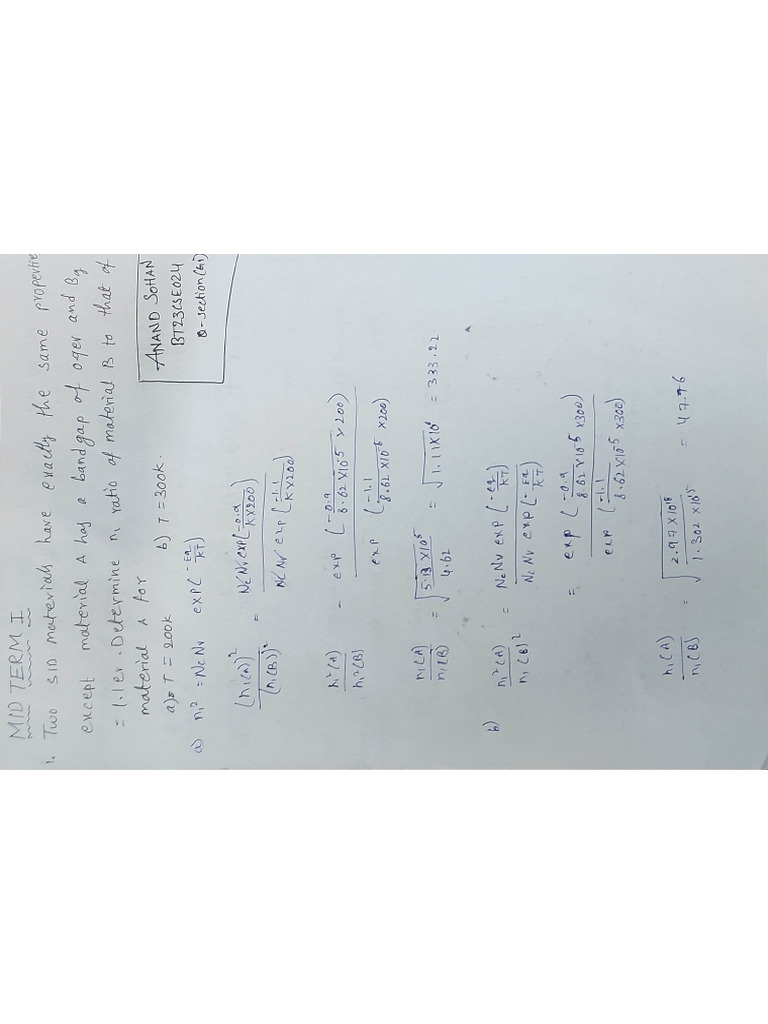 MID TERM I
1. Two SID materials have exactly the same propertie
except material A has a bandgap of 0.9er and Bg
= 1.1er. Determine ni ratio of material B to that of
material A for
a) T = 200K b) T = 300K.
ANAND SOHAN
BT23CSE024
section(G1)
a) ni² = NcNv exp(-Eg/KT)
(ni(A))²/(ni(B))² = NcNv exp(-0.9/K×200)/NcNv exp(-1.1/K×200)
ni²(A)/ni²(B) = exp(-0.9/8.62×10⁻⁵×200)/exp(-1.1/8.62×10⁻⁵×200)
ni(A)/ni(B) = √5.13×10⁵/4.62 = √1.11×10⁶ = 333.22
b) ni²(A)/ni(B)² = NcNv exp(-Eg/KT)/NcNv exp(-Eg/KT)
= exp(-0.9/8.62×10⁻⁵×300)/exp(-1.1/8.62×10⁻⁵×300)
ni(A)/ni(B) = √2.97×10¹⁸/1.302×10¹⁵ = 47.76